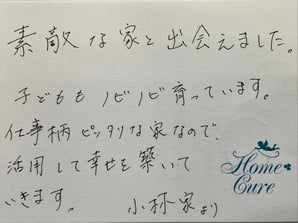 素敵な家と出会えました。
子どもも ノビノビ育っています。
仕事柄 ピッタリな家なので、
活用して幸せを築いて
いきます。
小林家より
Home
Cure